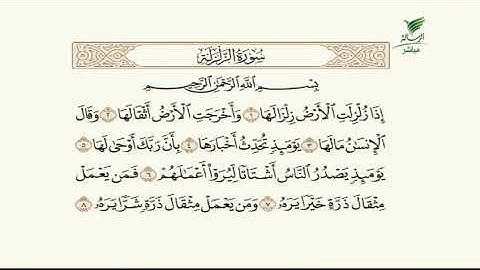 الرسالة
مباشر
سُورَةُ الزَّلْزَلَةِ
بِسْمِ اللَّهِ الرَّحْمَٰنِ الرَّحِيمِ
إِذَا زُلْزِلَتِ الْأَرْضُ زِلْزَالَهَا ١ وَأَخْرَجَتِ الْأَرْضُ أَثْقَالَهَا ٢ وَقَالَ
الْإِنسَٰنُ مَالَهَا ٣ يَوْمَئِذٍ تُحَدِّثُ أَخْبَارَهَا ٤ بِأَنَّ رَبَّكَ أَوْحَىٰ لَهَا ٥
يَوْمَئِذٍ يَصْدُرُ النَّاسُ أَشْتَاتًا لِّيُرَوْا أَعْمَٰلَهُمْ ٦ فَمَن يَعْمَلْ
مِثْقَالَ ذَرَّةٍ خَيْرًا يَرَهُ ٧ وَمَن يَعْمَلْ مِثْقَالَ ذَرَّةٍ شَرًّا يَرَهُ ٨